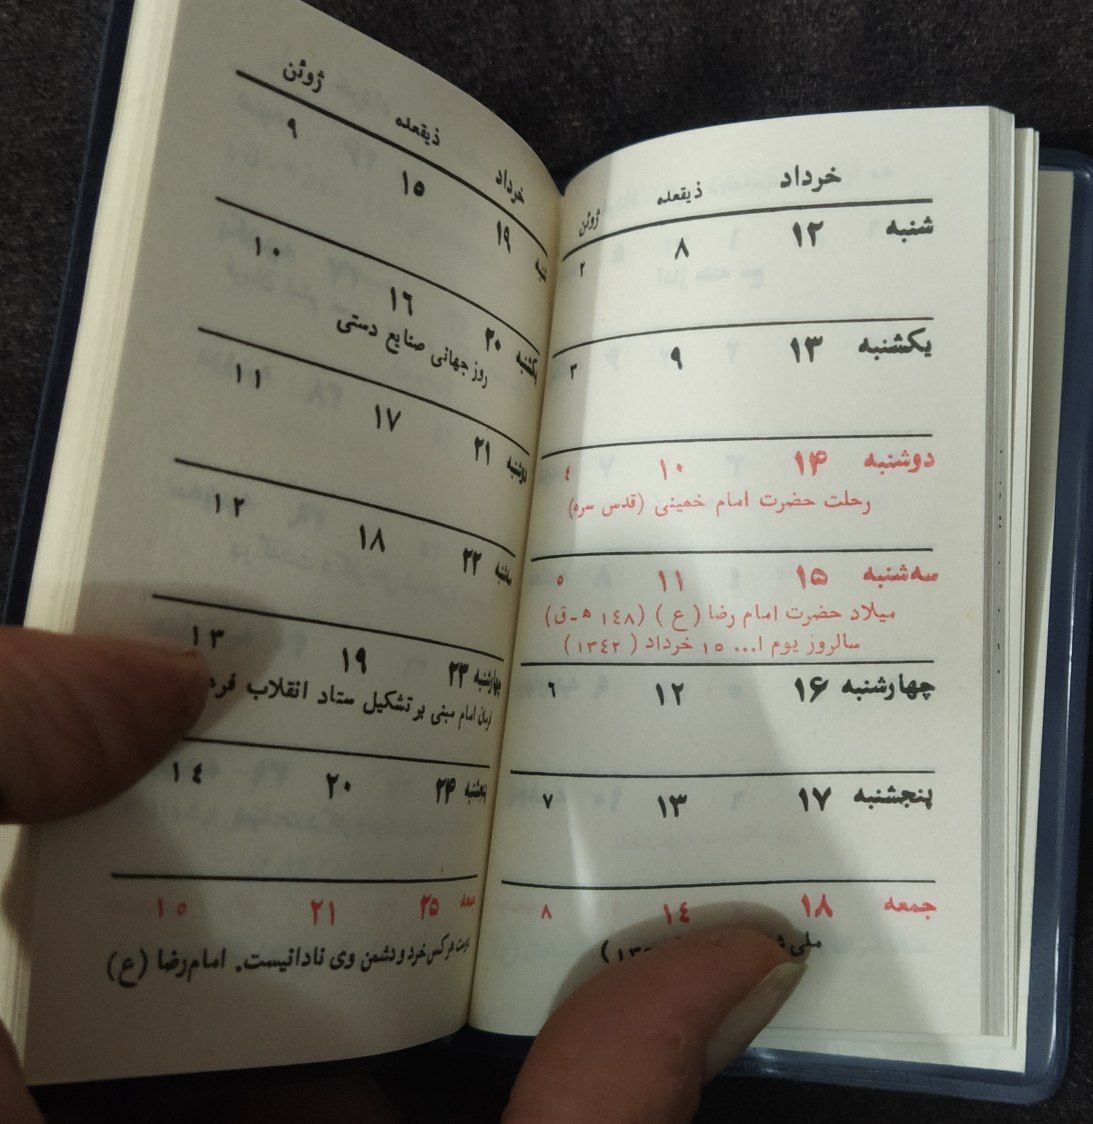 خرداد ذیقعده ژوئن
شنبه ۱۲ ۸ ۲
یکشنبه ۱۳ ۹ ۳
دوشنبه ۱۴ ۱۰ ٤
رحلت حضرت امام خمینی (قدس سره)
سه‌شنبه ۱۵ ۱۱ ٥
میلاد حضرت امام رضا (ع) (۱٤۸ ه‍ - ق)
سالروز یوم ا... ۱٥ خرداد (۱۳٤۲)
چهارشنبه ۱۶ ۱۲ ٦
پنجشنبه ۱۷ ۱۳ ۷
جمعه ۱۸ ۱۴ ۸
ملی
خرداد ذیقعده ژوئن
شنبه ۱۹ ۱۵ ۹
یکشنبه ۲۰ ۱۶ ۱۰
روز جهانی صنایع دستی
دوشنبه ۲۱ ۱۷ ۱۱
سه‌شنبه ۲۲ ۱۸ ۱۲
چهارشنبه ۲۳ ۱۹ ۱۳
فرمان امام مبنی بر تشکیل ستاد انقلاب
پنجشنبه ۲۴ ۲۰ ۱٤
جمعه ۲۵ ۲۱ ۱٥
دوست هرکس خرد و دشمن وی نادانیست. امام رضا (ع)